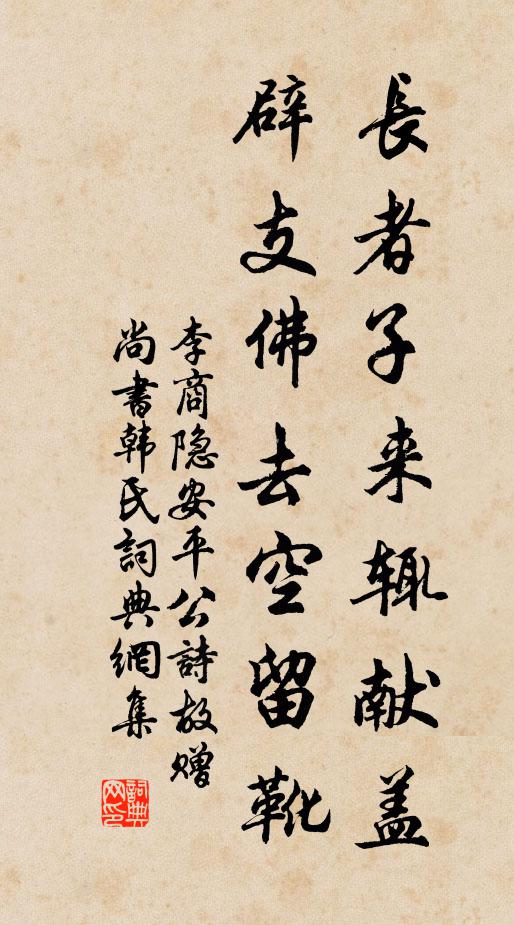 長者子来辄献盖
辟支佛去空留靴
李商隐安平公詩故赠
尚書韩氏詞典網集
詞典网印